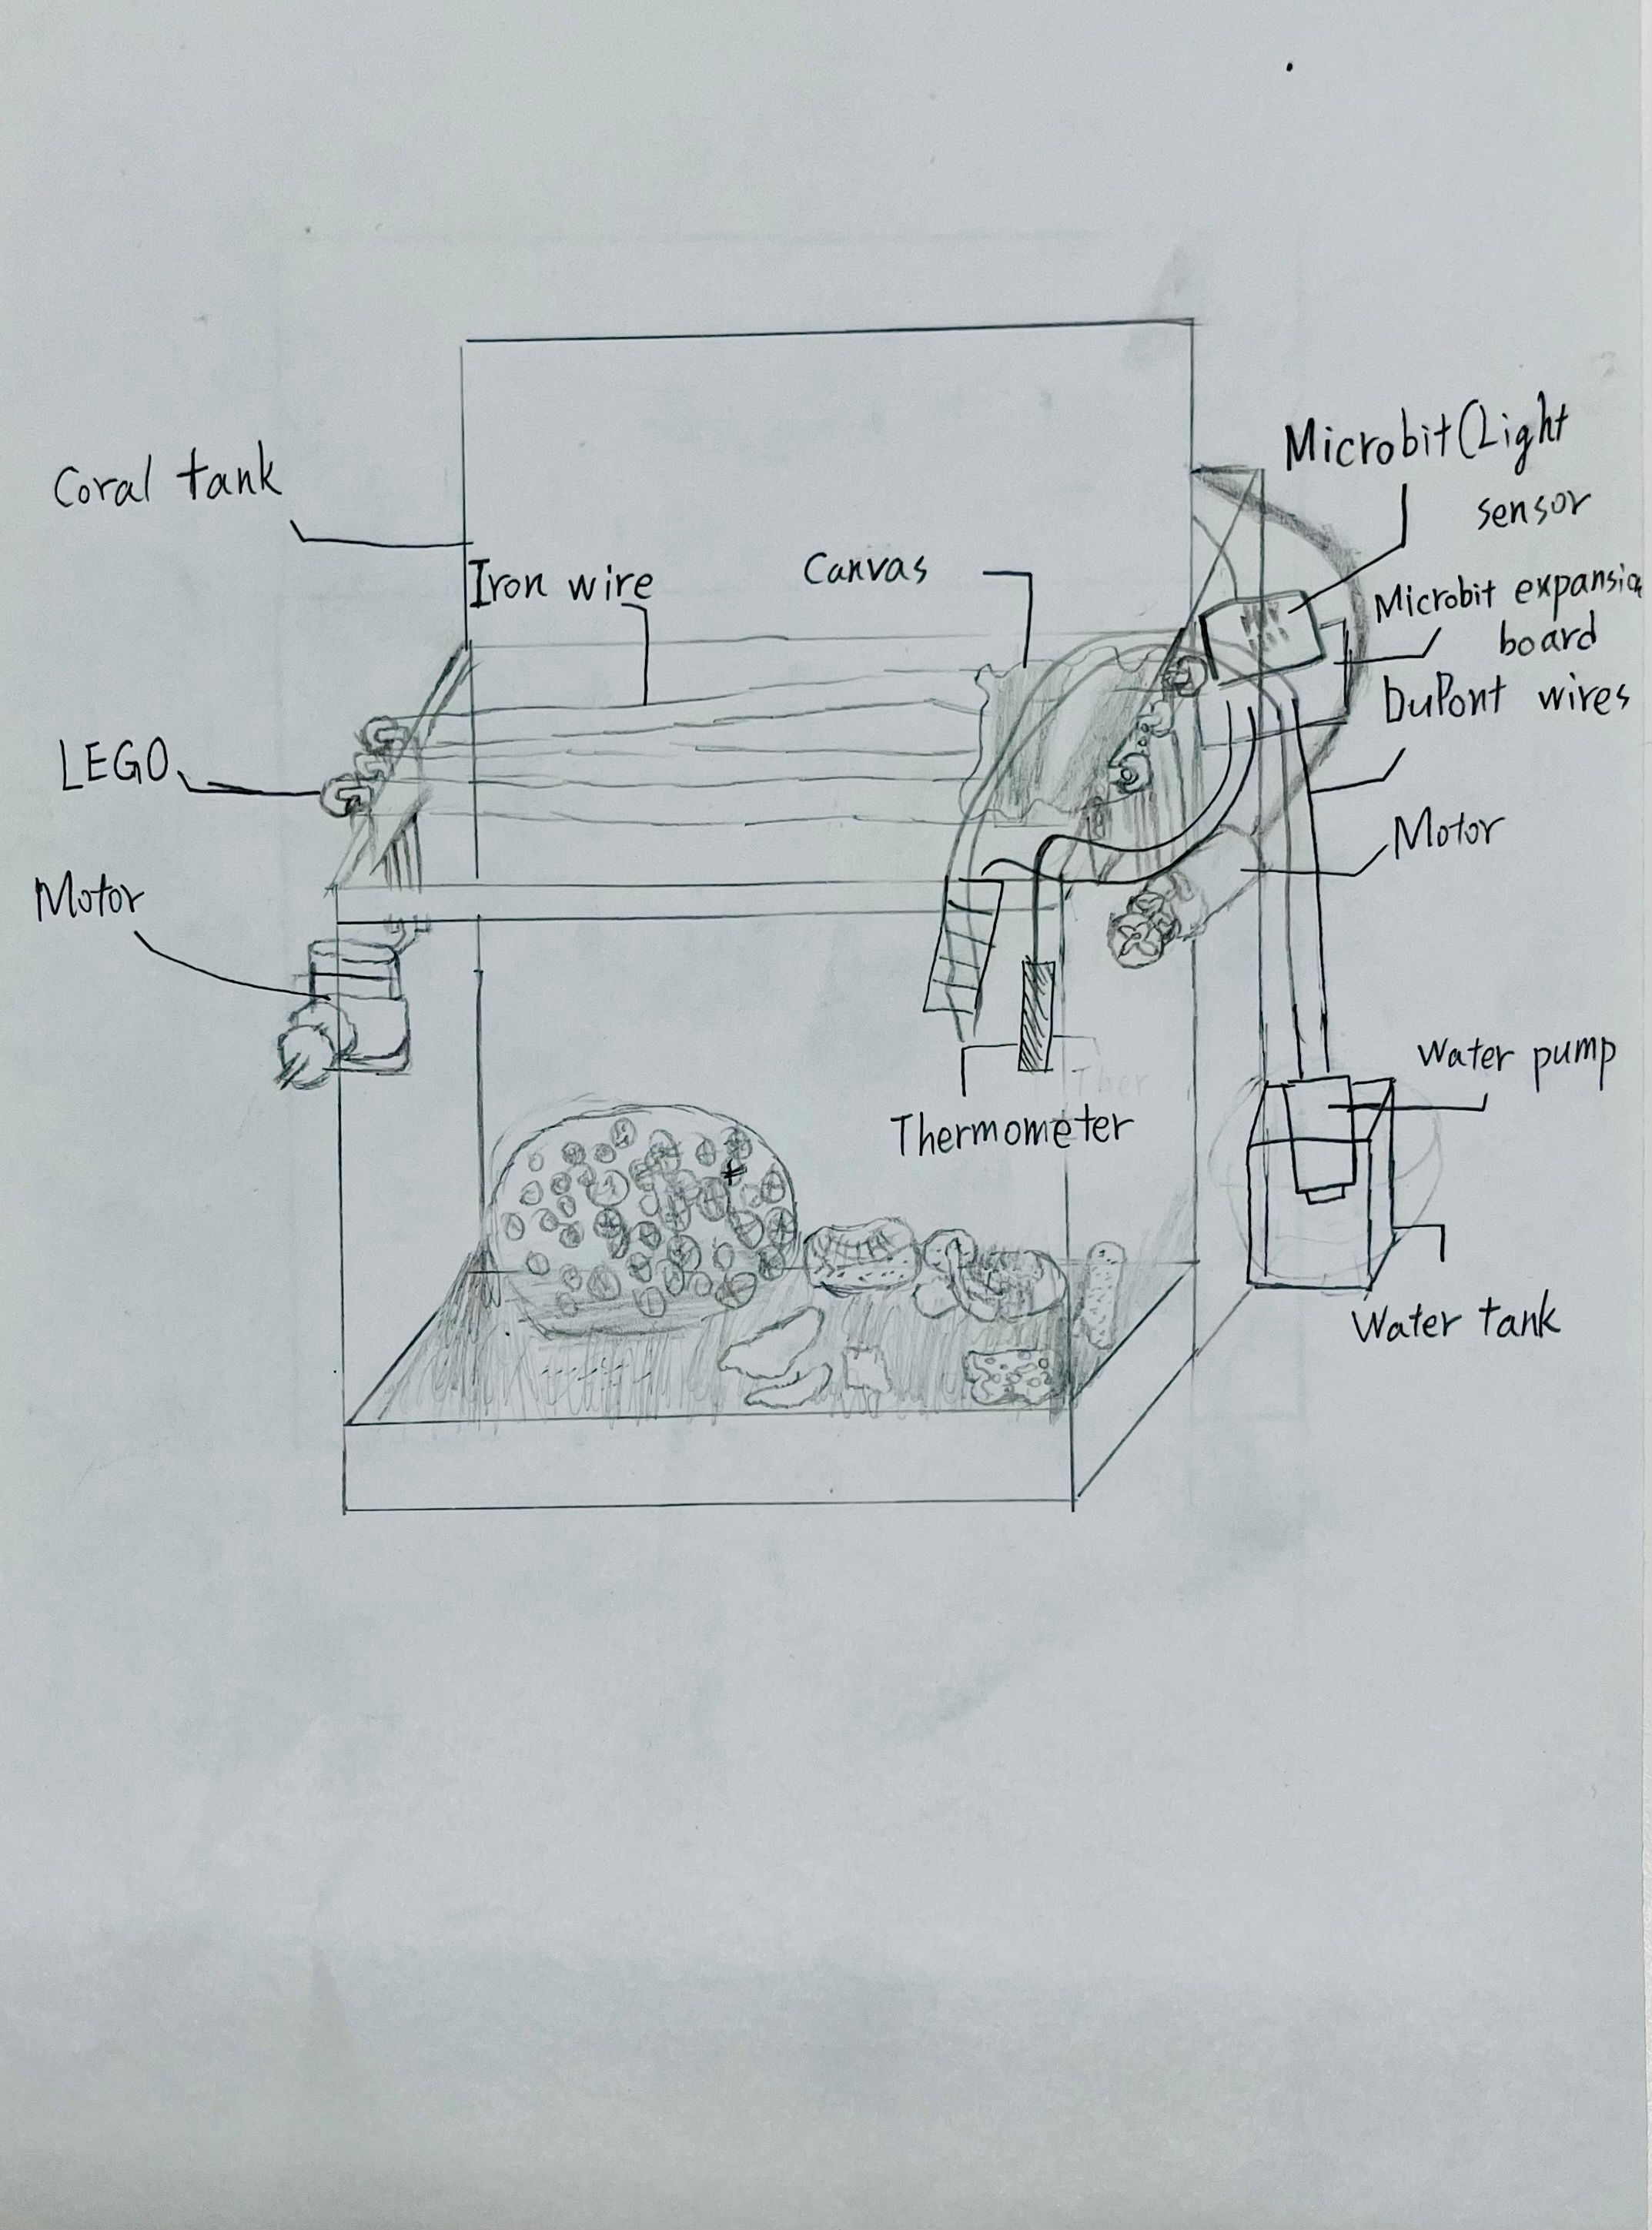 Coral tank
Iron wire
Canvas
Microbit(Light
sensor
Microbit expansion
board
DuPont wires
LEGO
Motor
Motor
Water pump
Thermometer
Ther
Water tank